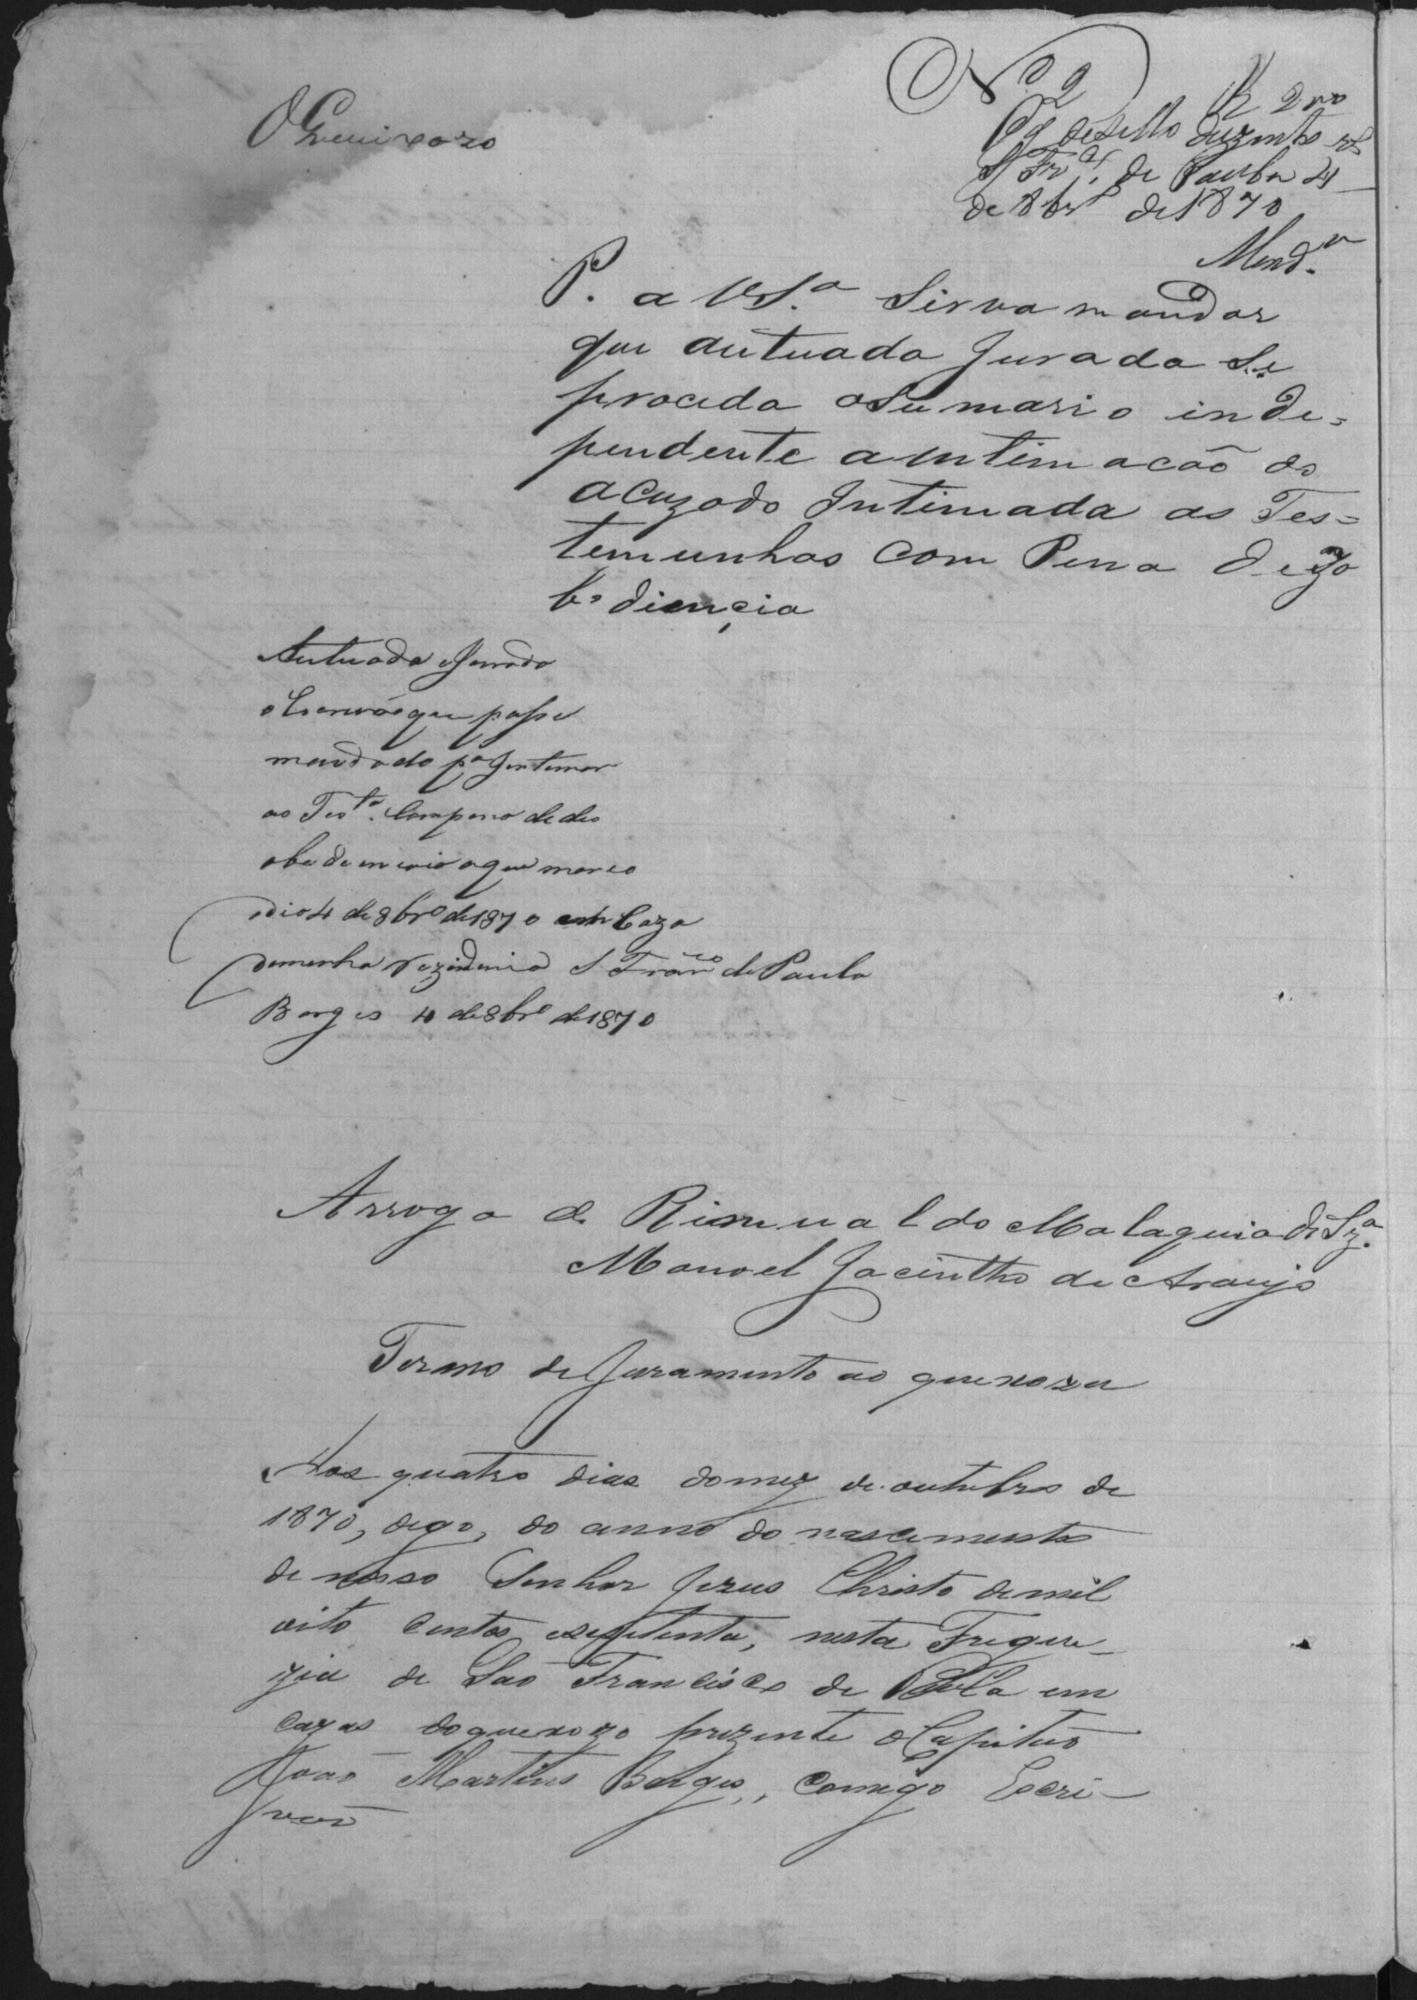 O Queixozo
Nº 2 R 200
Pg de Sello duzentos rs
S Fr.co de Paula 4
de 8br.o de 1870
Mend.ca
P. a V.S.a Sirva mandar
que autuada Jurada Se
proceda o Sumario inde=
pendente a intimacão do
acuzado Intimada as Tes=
temunhas com Pena dezo
bediencia
Autuada e Jurada
o Escrivão que passe
mandado p.a Jntemar
as Test.as com pena de des
obedeencia o que marco
o dia 4 de 8br.o de 1870 em Caza
de minha rezidencia S Fran.co de Paula
Borges 4 de 8br.o de 1870
Arrogo de Rimualdo Malaquia de Sz.a
Manoel Jacintho de Araujo
Termo de Juramento ao quexozo
Aos quatro dias do mez de outubro de
1870, digo, do anno do nascimento
de nosso Senhor Jezus Christo de mil
oito centos e setenta, nesta Fregue-
zia de São Francisco de Paula em
cazas do quexozo prezente o Capitão
João Martins Borges, comigo Escri-
vão